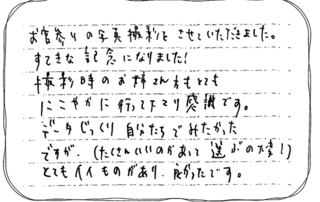 お宮参りの写真撮影をさせていただきました。
すてきな記念になりました！
撮影時のお姉さん方もとても
にこやかに行って下さり感謝です。
データじっくり自分たちでみたかった
ですが、(たくさんいいのがあって選ぶの大変！)
とてもイイものがあり、良かったです。